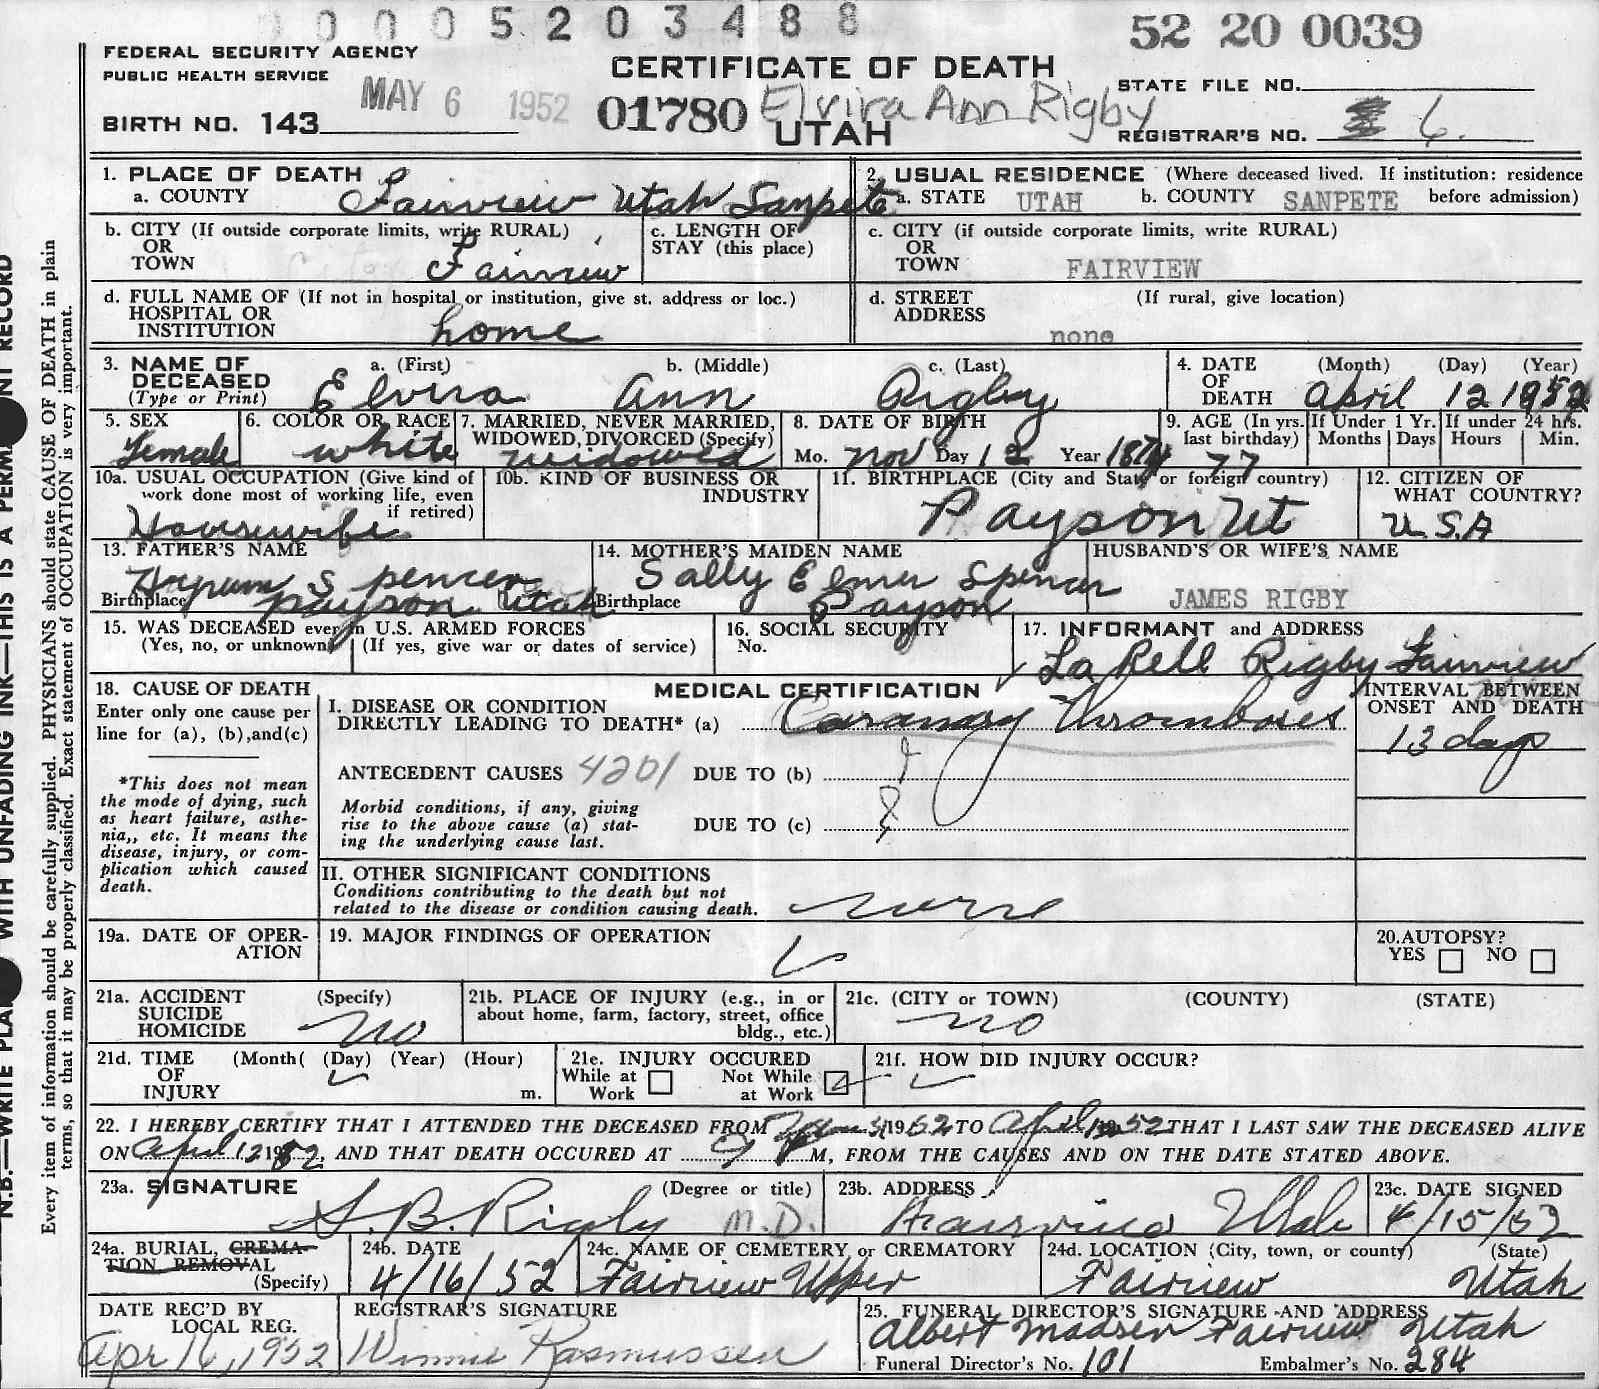 0 0 0 0 5 2 0 3 4 8 8
52 20 0039
FEDERAL SECURITY AGENCY
PUBLIC HEALTH SERVICE
MAY 6 1952
CERTIFICATE OF DEATH
STATE FILE NO.
01780 Elvira Ann Rigby
BIRTH NO. 143
UTAH
REGISTRAR'S NO. 6.
1. PLACE OF DEATH
a. COUNTY Fairview Utah Sanpete
2. USUAL RESIDENCE (Where deceased lived. If institution: residence
a. STATE UTAH b. COUNTY SANPETE before admission)
b. CITY (If outside corporate limits, write RURAL)
OR
TOWN Fairview
c. LENGTH OF
STAY (this place)
c. CITY (if outside corporate limits, write RURAL)
OR
TOWN FAIRVIEW
d. FULL NAME OF (If not in hospital or institution, give st. address or loc.)
HOSPITAL OR
INSTITUTION home
d. STREET (If rural, give location)
ADDRESS
none
3. NAME OF
DECEASED
(Type or Print)
a. (First) b. (Middle) c. (Last)
Elvira Ann Rigby
4. DATE (Month) (Day) (Year)
OF
DEATH April 12 1952
5. SEX
Female
6. COLOR OR RACE
white
7. MARRIED, NEVER MARRIED,
WIDOWED, DIVORCED (Specify)
widowed
8. DATE OF BIRTH
Mo. Nov Day 12 Year 1874
9. AGE (In yrs.
last birthday)
77
If Under 1 Yr.
Months Days
If under 24 hrs.
Hours Min.
10a. USUAL OCCUPATION (Give kind of
work done most of working life, even
if retired)
Housewife
10b. KIND OF BUSINESS OR
INDUSTRY
11. BIRTHPLACE (City and State or foreign country)
Payson Ut
12. CITIZEN OF
WHAT COUNTRY?
U.S.A
13. FATHER'S NAME
Hyrum Spencer
Birthplace Payson Utah
14. MOTHER'S MAIDEN NAME
Sally Elmer Spencer
Birthplace Payson
HUSBAND'S OR WIFE'S NAME
JAMES RIGBY
15. WAS DECEASED ever in U.S. ARMED FORCES
(Yes, no, or unknown) (If yes, give war or dates of service)
16. SOCIAL SECURITY
No.
17. INFORMANT and ADDRESS
LaRell Rigby Fairview
18. CAUSE OF DEATH
Enter only one cause per
line for (a), (b), and (c)
*This does not mean
the mode of dying, such
as heart failure, asthe-
nia,, etc. It means the
disease, injury, or com-
plication which caused
death.
MEDICAL CERTIFICATION
I. DISEASE OR CONDITION
DIRECTLY LEADING TO DEATH* (a) Coronary Thromboses
ANTECEDENT CAUSES 4201 DUE TO (b)
Morbid conditions, if any, giving
rise to the above cause (a) stat-
ing the underlying cause last.
DUE TO (c)
INTERVAL BETWEEN
ONSET AND DEATH
13 days
II. OTHER SIGNIFICANT CONDITIONS
Conditions contributing to the death but not
related to the disease or condition causing death.
none
19a. DATE OF OPER-
ATION
19. MAJOR FINDINGS OF OPERATION
20. AUTOPSY?
YES NO
21a. ACCIDENT (Specify)
SUICIDE
HOMICIDE no
21b. PLACE OF INJURY (e.g., in or
about home, farm, factory, street, office
bldg., etc.)
21c. (CITY or TOWN) (COUNTY) (STATE)
no
21d. TIME (Month( (Day) (Year) (Hour)
OF
INJURY m.
21e. INJURY OCCURED
While at Work Not While at Work
21f. HOW DID INJURY OCCUR?
22. I HEREBY CERTIFY THAT I ATTENDED THE DECEASED FROM 1952 TO April 12 52 THAT I LAST SAW THE DECEASED ALIVE
ON April 12 1952, AND THAT DEATH OCCURED AT 9 P M, FROM THE CAUSES AND ON THE DATE STATED ABOVE.
23a. SIGNATURE (Degree or title)
S. B. Rigby M.D.
23b. ADDRESS
Fairview Utah
23c. DATE SIGNED
4/15/52
24a. BURIAL, CREMA-
TION REMOVAL
(Specify)
24b. DATE
4/16/52
24c. NAME OF CEMETERY or CREMATORY
Fairview Upper
24d. LOCATION (City, town, or county) (State)
Fairview Utah
DATE REC'D BY
LOCAL REG.
Apr 16, 1952
REGISTRAR'S SIGNATURE
Winnie Rasmussen
25. FUNERAL DIRECTOR'S SIGNATURE AND ADDRESS
Albert Madsen Fairview Utah
Funeral Director's No. 101 Embalmer's No. 284
N.B.—WRITE PLAI WITH UNFADING INK—THIS IS A PERMA NT RECORD
Every item of information should be carefully supplied. PHYSICIANS should state CAUSE OF DEATH in plain
terms, so that it may be properly classified. Exact statement of OCCUPATION is very important.